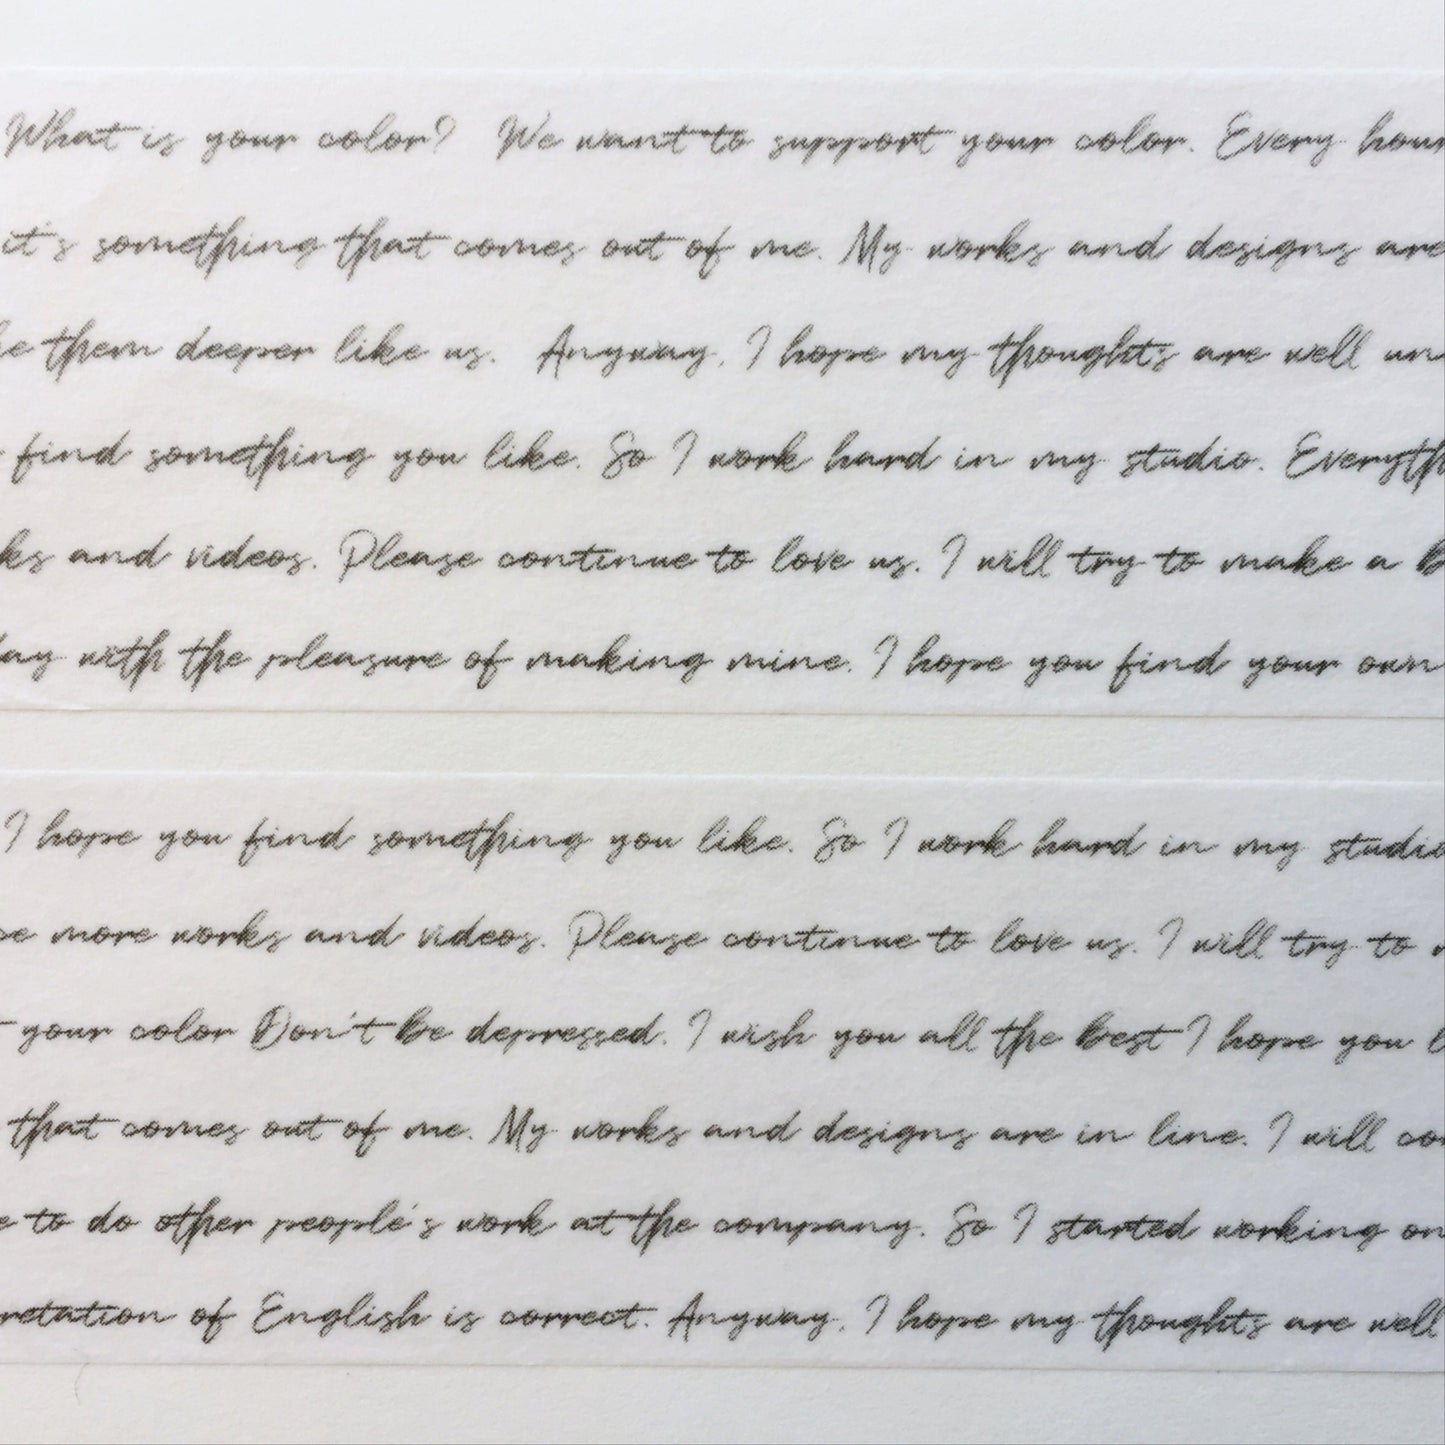 What is your color? We want to support your color. Every hour
it's something that comes out of me. My works and designs are
them deeper like us. Anyway, I hope my thoughts are well un
find something you like. So I work hard in my studio. Everyth
ks and videos. Please continue to love us. I will try to make a b
ay with the pleasure of making mine. I hope you find your own
I hope you find something you like. So I work hard in my studio
e more works and videos. Please continue to love us. I will try to
your color Don't be depressed. I wish you all the best I hope you l
that comes out of me. My works and designs are in line. I will con
e to do other people's work at the company. So I started working on
retation of English is correct. Anyway, I hope my thoughts are well